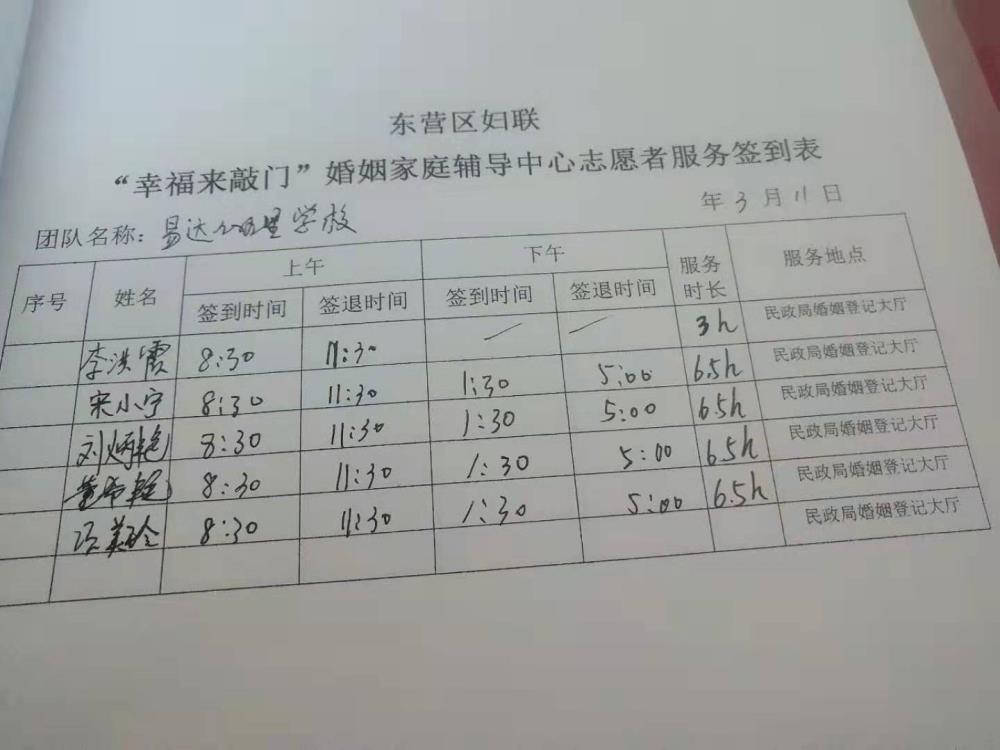 东营区妇联
“幸福来敲门”婚姻家庭辅导中心志愿者服务签到表
团队名称：易达心理学校 年 3 月 11 日
序号 姓名 上午 下午 服务时长 服务地点
签到时间 签退时间 签到时间 签退时间
李洪霞 8:30 11:30 — — 3h 民政局婚姻登记大厅
宋小宁 8:30 11:30 1:30 5:00 6.5h 民政局婚姻登记大厅
刘炳艳 8:30 11:30 1:30 5:00 6.5h 民政局婚姻登记大厅
董 艳 8:30 11:30 1:30 5:00 6.5h 民政局婚姻登记大厅
项美玲 8:30 11:30 1:30 5:00 6.5h 民政局婚姻登记大厅
民政局婚姻登记大厅